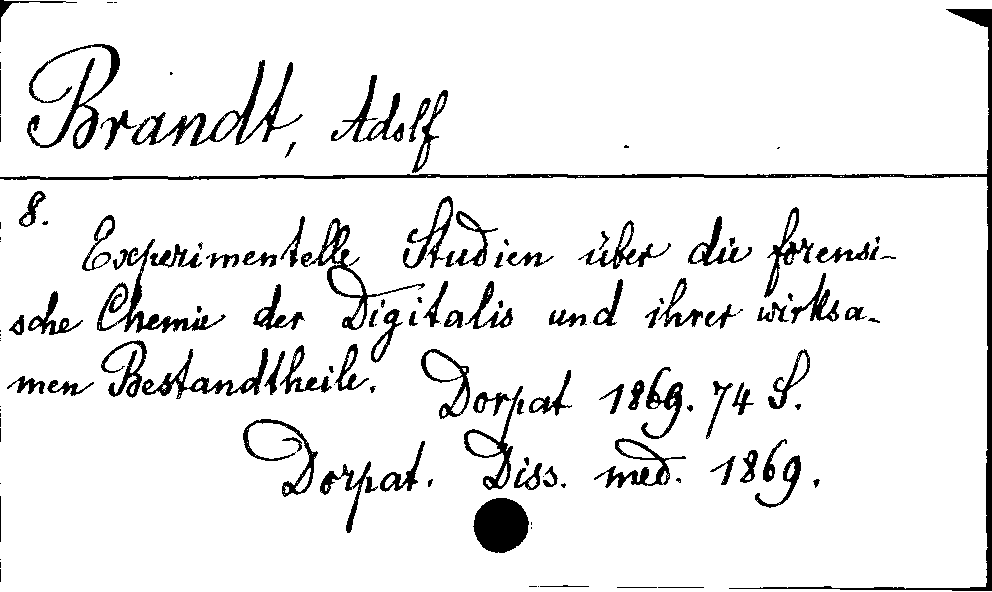 Brandt, Adolf
8.
Experimentelle Studien über die forensi-
sche Chemie der Digitalis und ihrer wirksa-
men Bestandtheile.
Dorpat 1869. 74 S.
Dorpat. Diss. med. 1869.